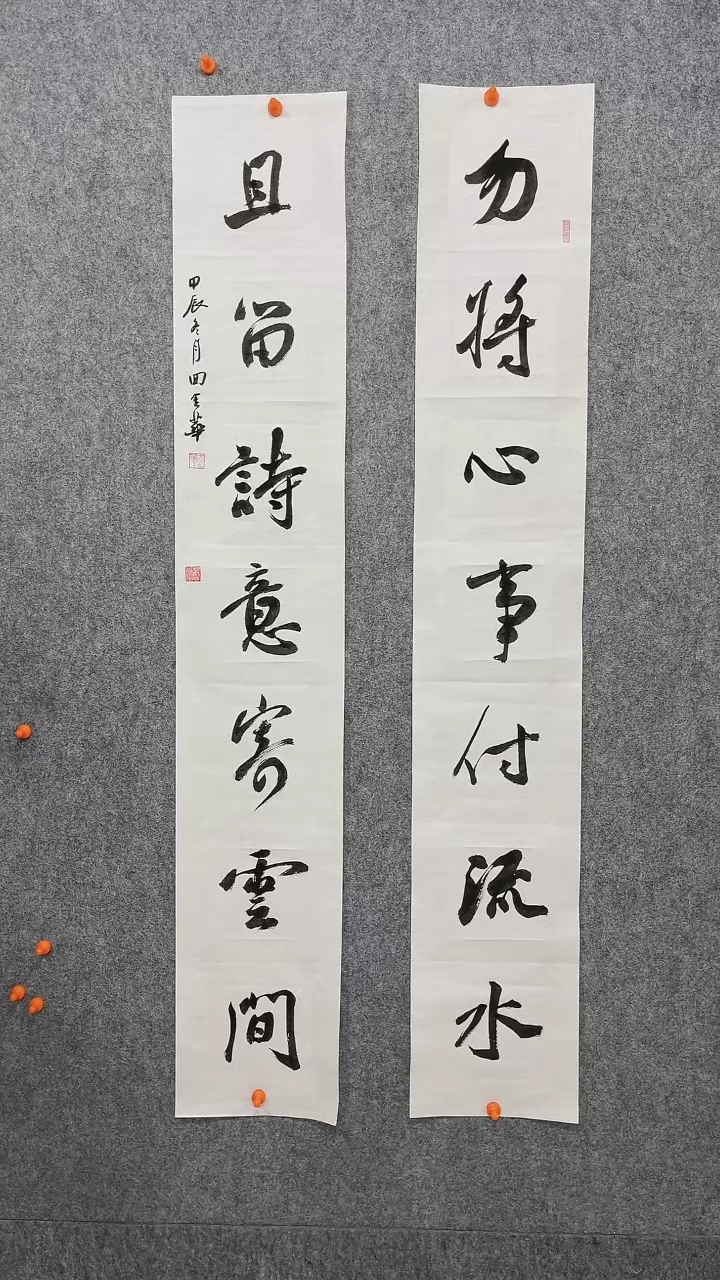 勿将心事付流水
且留詩意寄雲間
甲辰冬月田書華